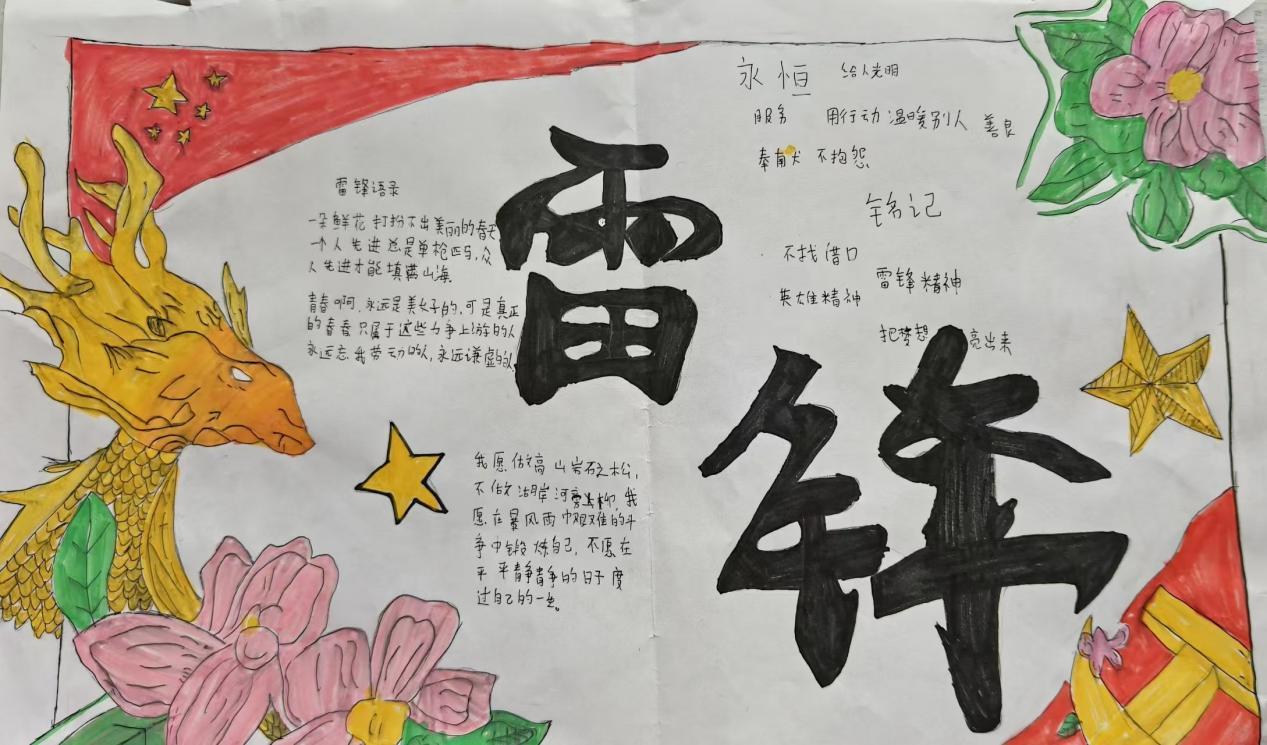 雷锋语录
一朵鲜花打扮不出美丽的春天
一个人先进总是单枪匹马,众
人先进才能填满山海
青春啊,永远是美好的,可是真正
的青春只属于这些力争上游的人
永远忘我劳动的人,永远谦虚的人
雷
锋
永恒 给人光明
服务 用行动温暖别人 善良
奉献 不抱怨
铭记
不找借口
雷锋精神
英雄精神
把梦想亮出来
我愿做高山岩石之松,
不做湖岸河旁之柳,我
愿在暴风雨中艰难的斗
争中锻炼自己,不愿在
平平静静的日子度
过自己的一生。